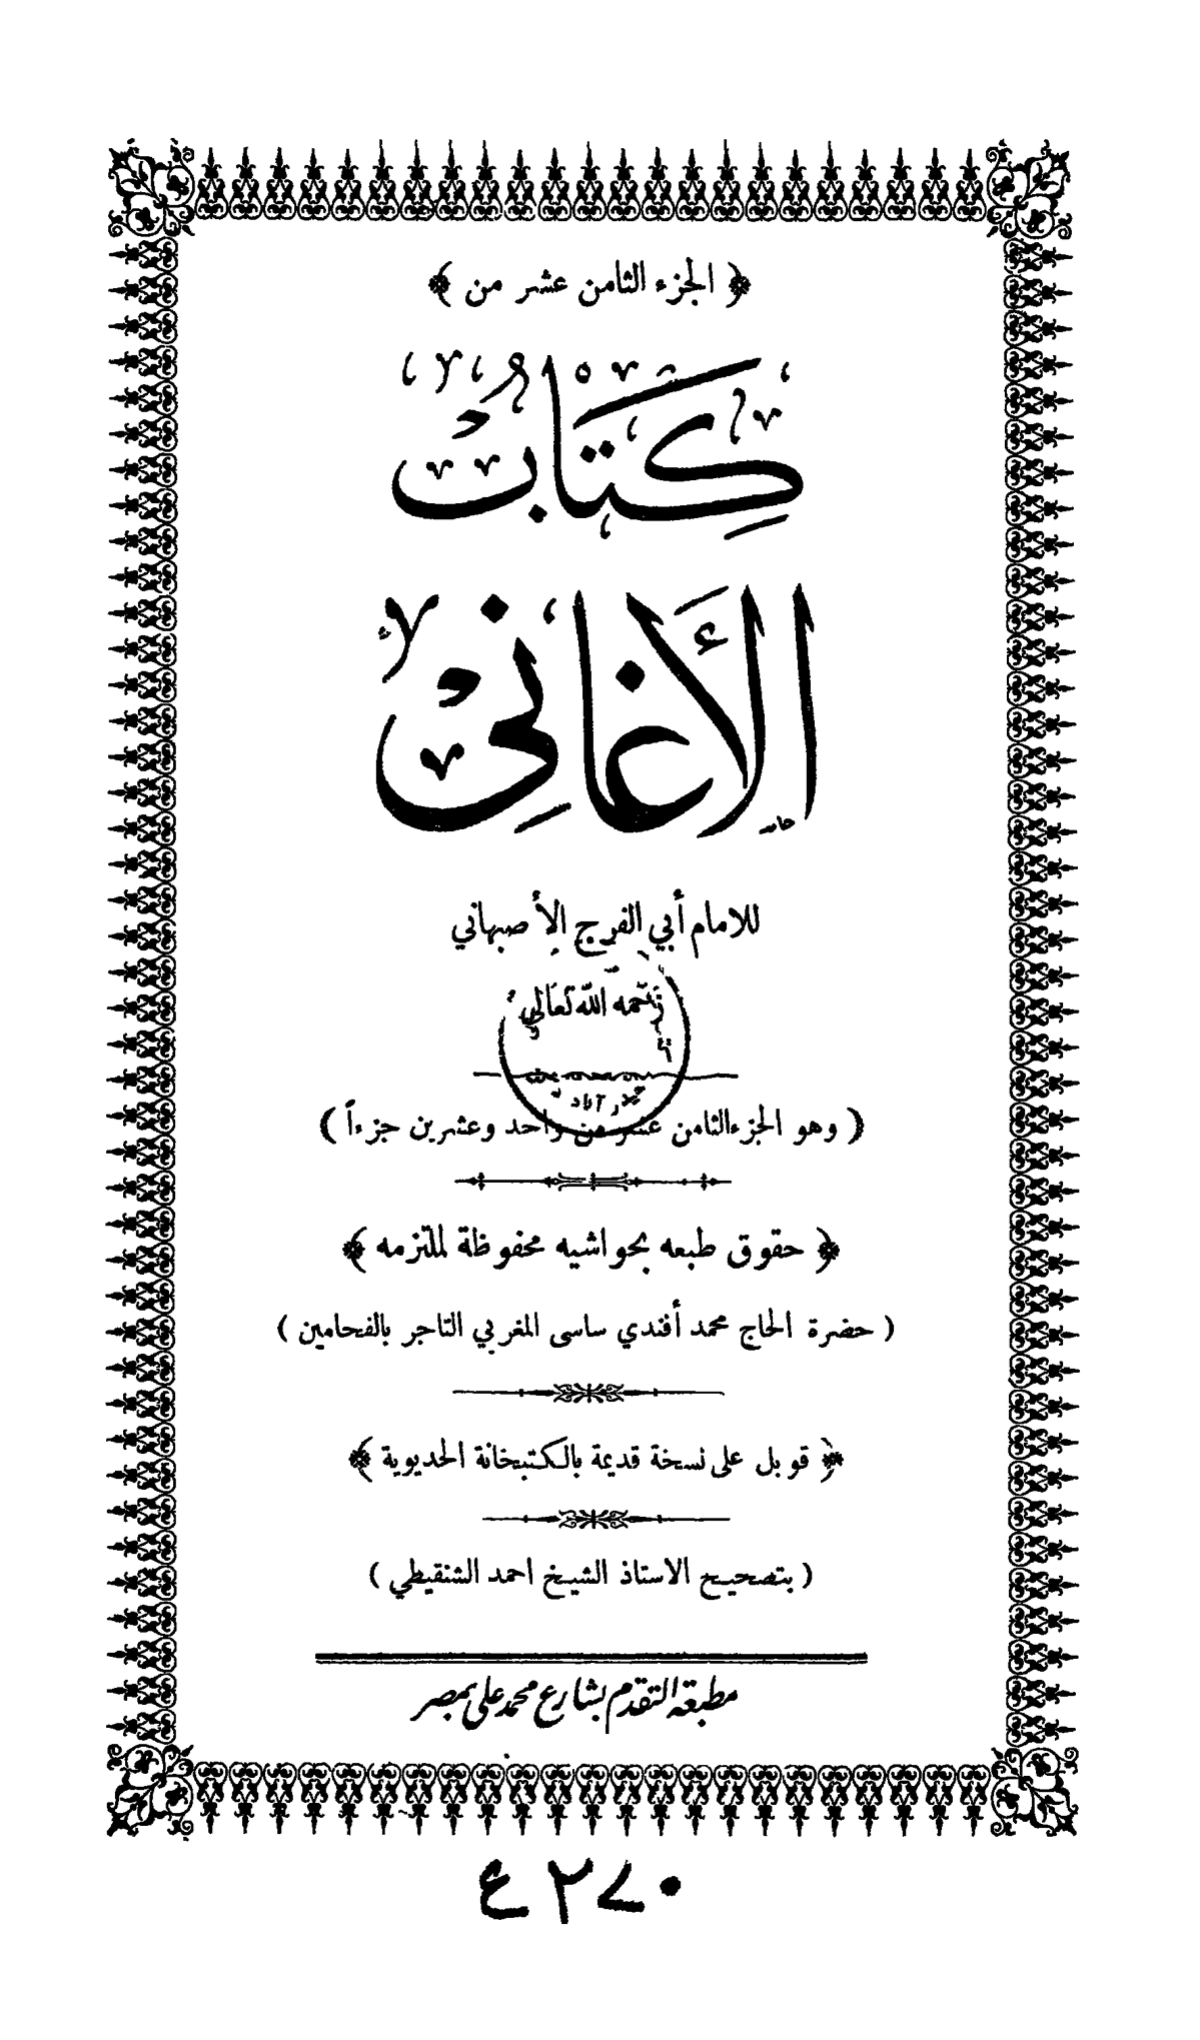 ﴿ الجزء الثامن عشر من ﴾
كِتَابُ
الأَغَانِي
للامام أبي الفرج الأصبهاني
رحمه الله تعالى
حيدر آباد
( وهو الجزء الثامن عشر من واحد وعشرين جزءاً )
﴿ حقوق طبعه بحواشيه محفوظة لملتزمه ﴾
( حضرة الحاج محمد أفندي ساسى المغربي التاجر بالفحامين )
﴿ قوبل على نسخة قديمة بالكتبخانة الخديوية ﴾
( بتصحيح الاستاذ الشيخ احمد الشنقيطي )
مطبعة التقدم بشارع محمد على بمصر